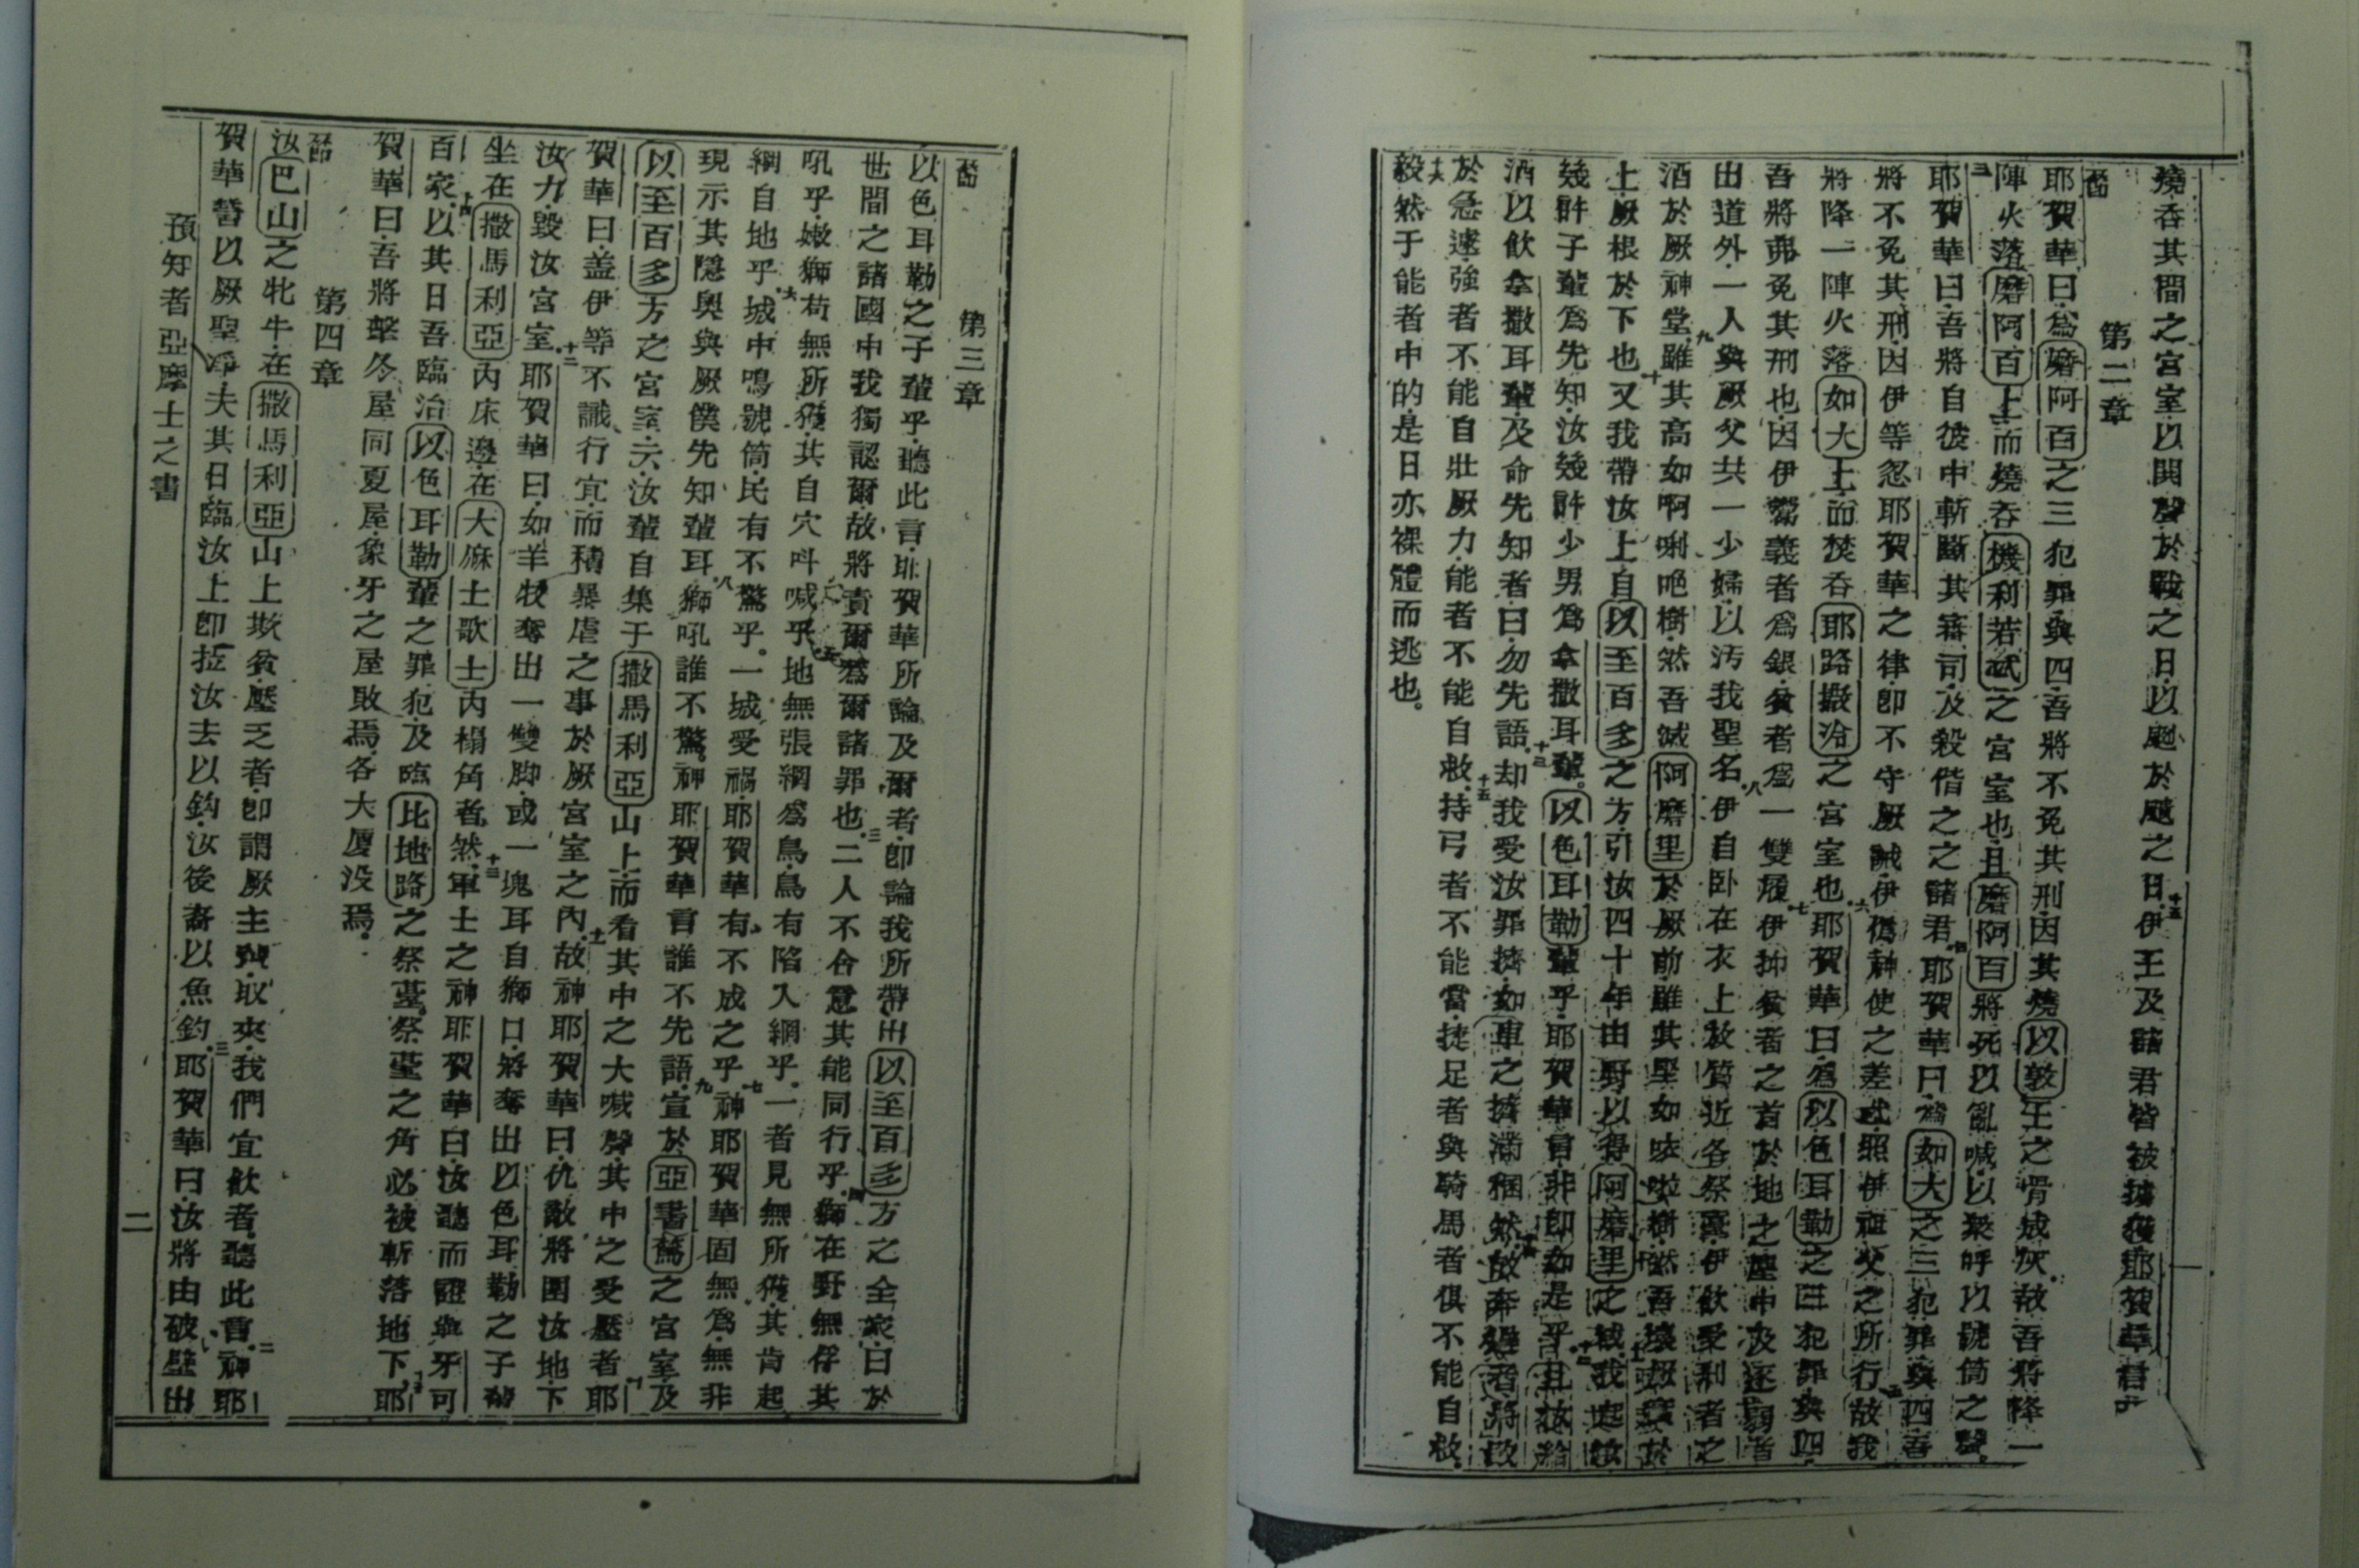 燒吞其間之宮室以閧聲於戰之日以颶於颶之日十五伊王及諸君皆被擄獲耶賀華言
第二章
耶賀華曰爲磨阿百之三犯罪與四吾將不免其刑因其燒以敦王之骨成灰二故吾將降一
陣火落磨阿百上而燒吞機利若忒之宮室也且磨阿百將死以亂喊以衆呼以號筒之聲
三耶賀華曰吾將自彼中斬斷其審司及殺偕之之諸君四耶賀華曰爲如大之三犯罪與四吾
將不免其刑因伊等忽耶賀華之律卽不守厥誡伊僞神使之差忒照伊祖父之所行五故我
將降一陣火落如大上而焚吞耶路撒冷之宮室也六耶賀華曰爲以色耳勒之三犯罪與四
吾將弗免其刑也因伊鬻義者爲銀貧者爲一雙履七伊抻貧者之首於地之塵中及逐弱者
出道外一人與厥父共一少婦以汚我聖名八伊自卧在衣上放質近各祭臺伊飲受利者之
酒於厥神堂九雖其高如啊唎吧樹然吾滅阿磨里於厥前雖其堅如咴啦樹然吾壞厥實於
上厥根於下也十又我帶汝上自以至百多之方引汝四十年由野以得阿磨里之域十一我起汝
幾許子輩爲先知汝幾許少男爲拿撒耳輩以色耳勒輩乎耶賀華言非卽如是乎十二且汝給
酒以飲拿撒耳輩及命先知者曰勿先語十三却我受汝罪擠如車之擠滿稛然十四故奔避者將敗
於急速强者不能自壯厥力能者不能自救十五持弓者不能當捷足者與騎馬者俱不能自救
十六毅然于能者中的是日亦裸體而逃也
第三章
以色耳勒之子輩乎聽此言耶賀華所論及爾者卽論我所帶出以至百多方之全家曰二於
世間之諸國中我獨認爾故將責爾爲爾諸罪也三二人不合意其能同行乎四獅在野無俘其
吼乎嫩獅苟無所獲其自穴呌喊乎五地無張網爲鳥鳥有陷入網乎一者見無所獲其肯起
網自地乎六城中鳴號筒民有不驚乎一城受禍耶賀華有不成之乎七神耶賀華固無爲無非
現示其隱與與厥僕先知輩耳八獅吼誰不驚神耶賀華言誰不先語九宣於亞書篤之宮室及
以至百多方之宮室云汝輩自集于撒馬利亞山上而看其中之大喊聲其中之受壓者十耶
賀華曰盖伊等不識行宜而積暴虐之事於厥宮室之內十一故神耶賀華曰仇敵將圍汝地下
汝力毀汝宮室十二耶賀華曰如羊牧奪出一雙脚或一塊耳自獅口將奪出以色耳勒之子輩
坐在撒馬利亞內床邊在大麻士歌士內榻角者然十三軍士之神耶賀華曰汝聽而證與牙可
百家十四以其日吾臨治以色耳勒輩之罪犯及臨比地路之祭臺祭臺之角必被斬落地下十五耶
賀華曰吾將擊冬屋同夏屋象牙之屋敗焉各大厦没焉
第四章
汝巴山之牝牛在撒馬利亞山上欺貧壓乏者卽謂厥主輩取來我們宜飲者聽此言二神耶
賀華誓以厥聖凈夫其日臨汝上卽拉汝去以鈎汝後裔以魚釣三耶賀華曰汝將由破壁出
預知者亞摩士之書
二